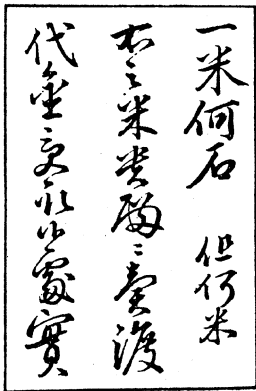 一米何石　但何米
右之米貴殿ニ賣渡
代金受取候處實